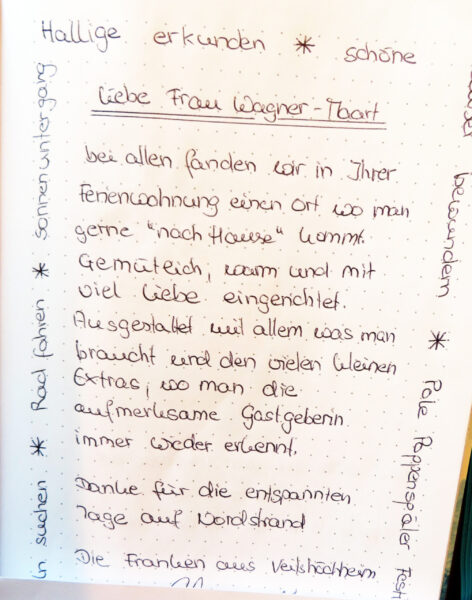 Hallige erkunden * schöne
Liebe Frau Wagner-Tbart
bei allen fanden wir in Ihrer
Ferienwohnung einen Ort wo man
gerne "nach Hause" kommt.
Gemütlich, warm und mit
viel Liebe eingerichtet.
Ausgestaltet mit allem was man
braucht und den vielen kleinen
Extras, wo man die
aufmerksame Gastgeberin
immer wieder erkennt.
Danke für die entspannten
Tage auf Nordstrand
Die Franken aus Veitshöchheim
n suchen * Rad fahren * sonnenuntergang
bewundern * Pole Poppenspäler Festi